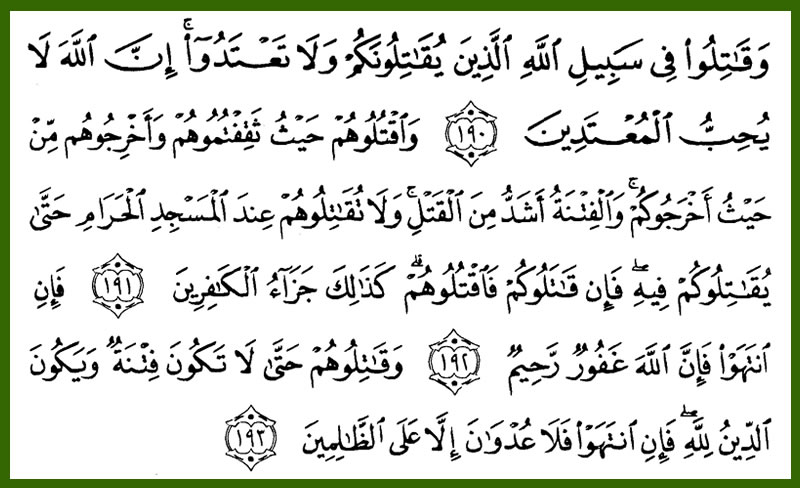 وَقَٰتِلُوا۟ فِى سَبِيلِ ٱللَّهِ ٱلَّذِينَ يُقَٰتِلُونَكُمْ وَلَا تَعْتَدُوٓا۟ ۚ إِنَّ ٱللَّهَ لَا
يُحِبُّ ٱلْمُعْتَدِينَ ١٩٠ وَٱقْتُلُوهُمْ حَيْثُ ثَقِفْتُمُوهُمْ وَأَخْرِجُوهُم مِّنْ
حَيْثُ أَخْرَجُوكُمْ ۚ وَٱلْفِتْنَةُ أَشَدُّ مِنَ ٱلْقَتْلِ ۚ وَلَا تُقَٰتِلُوهُمْ عِندَ ٱلْمَسْجِدِ ٱلْحَرَامِ حَتَّىٰ
يُقَٰتِلُوكُمْ فِيهِ ۖ فَإِن قَٰتَلُوكُمْ فَٱقْتُلُوهُمْ ۗ كَذَٰلِكَ جَزَآءُ ٱلْكَٰفِرِينَ ١٩١ فَإِنِ
ٱنتَهَوْا۟ فَإِنَّ ٱللَّهَ غَفُورٌ رَّحِيمٌ ١٩٢ وَقَٰتِلُوهُمْ حَتَّىٰ لَا تَكُونَ فِتْنَةٌ وَيَكُونَ
ٱلدِّينُ لِلَّهِ ۖ فَإِنِ ٱنتَهَوْا۟ فَلَا عُدْوَٰنَ إِلَّا عَلَى ٱلظَّٰلِمِينَ ١٩٣